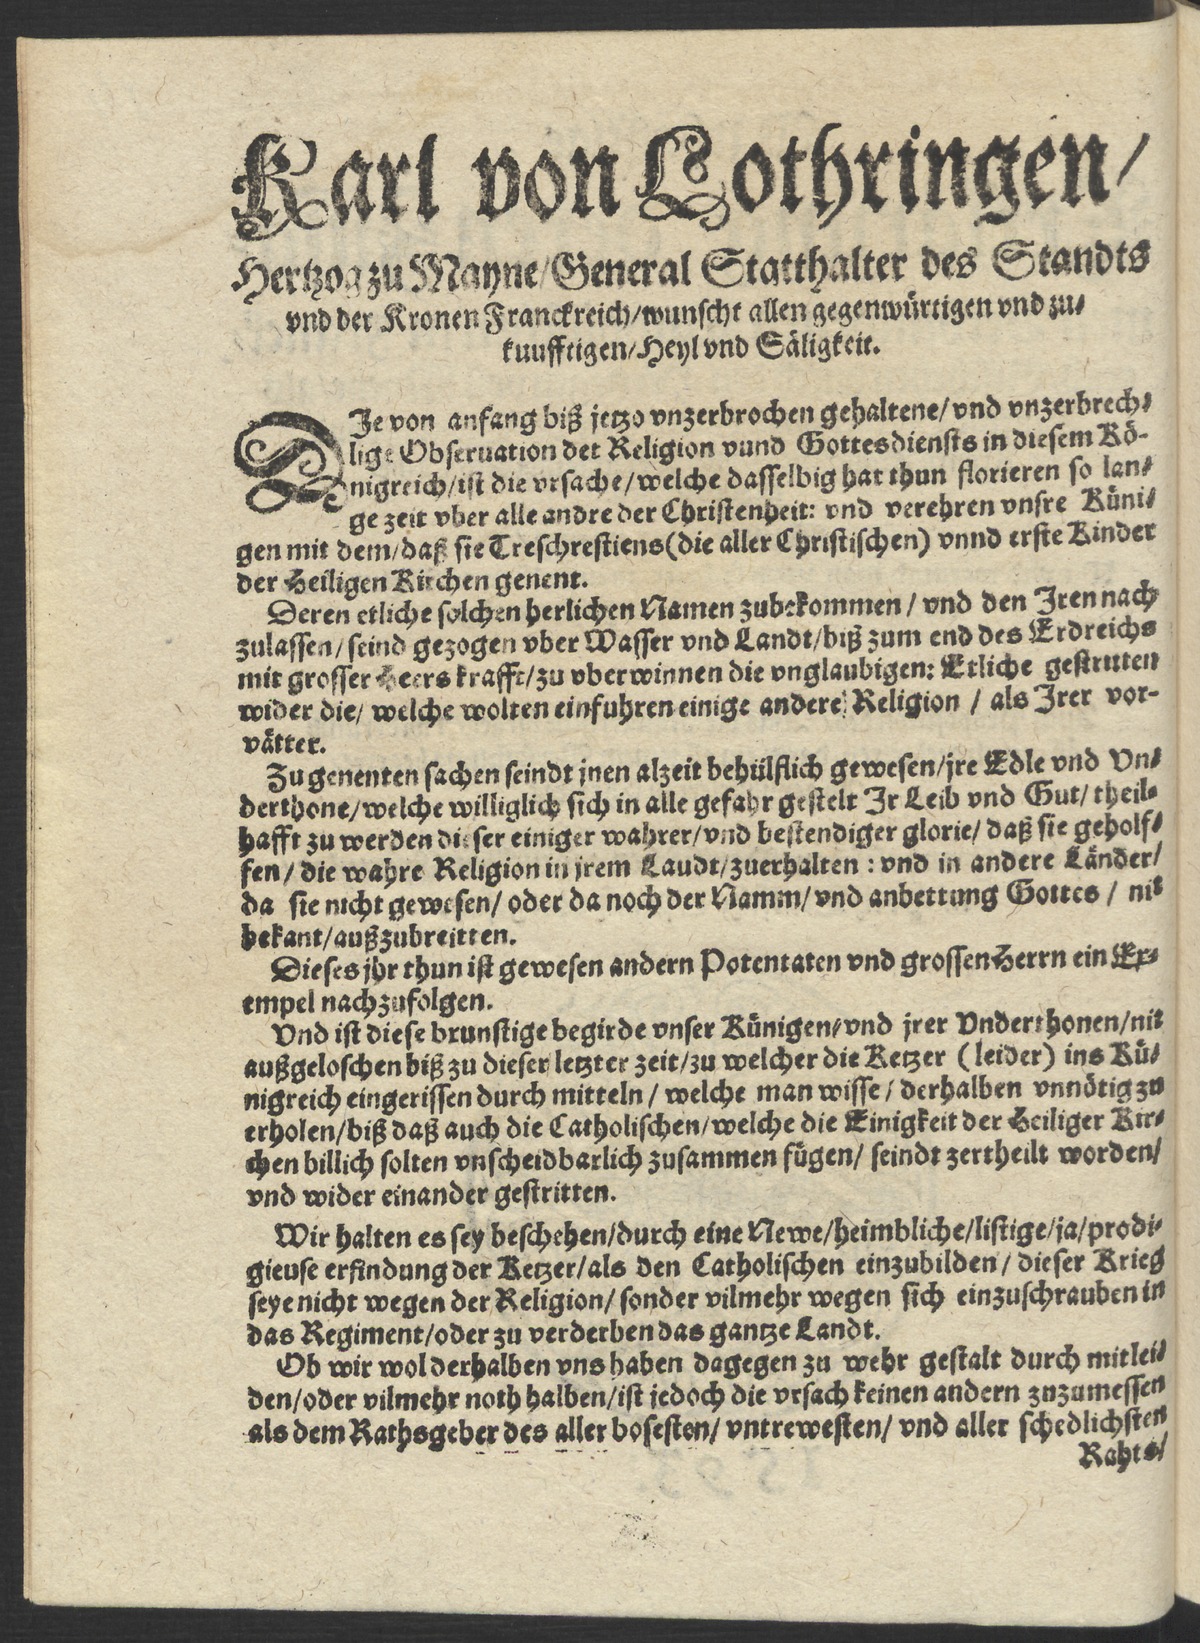 Karl von Lothringen/
Hertzog zu Mayne/General Statthalter des Standts
vnd der Kronen Franckreich/wunscht allen gegenwürtigen vnd zu⸗
kuufftigen/Heyl vnd Säligkeit.
DJe von anfang biß jetzo vnzerbrochen gehaltene/vnd vnzerbrech⸗
lige Obseruation det Religion vund Gottesdiensts in diesem Kö-
nigreich/ist die vrsache/welche dasselbig hat thun florieren so lan⸗
ge zeit vber alle andre der Christenheit: vnd verehren vnsre Küni⸗
gen mit dem/daß sie Treschrestiens(die aller Christischen) vnnd erste Kinder
der Heiligen Kirchen genent.
Deren etliche solchen herlichen Namen zubekommen/ vnd den Jren nach
zulassen/seind gezogen vber Wasser vnd Landt/biß zum end des Erdreichs
mit grosser Heers krafft/zu vberwinnen die vnglaubigen: Etliche gestritten
wider die/ welche wolten einfuhren einige andere Religion / als Jrer vor-
vätter.
Zu genenten sachen seindt jnen alzeit behülflich gewesen/jre Edle vnd Vn⸗
derthone/welche williglich sich in alle gefahr gestelt Jr Leib vnd Gut/ theil⸗
hafft zu werden dieser einiger wahrer/vnd bestendiger glorie/ daß sie geholf⸗
fen/ die wahre Religion in jrem Laudt/zuerhalten : vnd in andere Länder/
da sie nicht gewesen/ oder da noch der Namm/ vnd anbettung Gottes / nit
bekant/außzubreitten.
Dieses jhr thun ist gewesen andern Potentaten vnd grossen Herrn ein Ex⸗
empel nachzufolgen.
Vnd ist diese brunstige begirde vnser Künigen/vnd jrer Vnderthonen/nit
außgeloschen biß zu dieser letzter zeit/zu welcher die Ketzer (leider) ins Kü⸗
nigreich eingerissen durch mitteln/ welche man wisse/ derhalben vnnötig zu
erholen/biß daß auch die Catholischen/welche die Einigkeit der Heiliger Kir⸗
chen billich solten vnscheidbarlich zusammen fügen/ seindt zertheilt worden/
vnd wider einander gestritten.
Wir halten es sey beschehen/durch eine Newe/heimbliche/listige/ja/prodi⸗
gieuse erfindung der Ketzer/als den Catholischen einzubilden/ dieser Krieg
seye nicht wegen der Religion/ sonder vilmehr wegen sich einzuschrauben in
das Regiment/oder zu verderben das gantze Landt.
Ob wir wol derhalben vns haben dagegen zu wehr gestalt durch mitlei⸗
den/oder vilmehr noth halben/ist jedoch die vrsach keinen andern znzumessen
als dem Rathsgeber des aller bosesten/ vntrewesten/ vnd aller schedlichsten
Rahts/